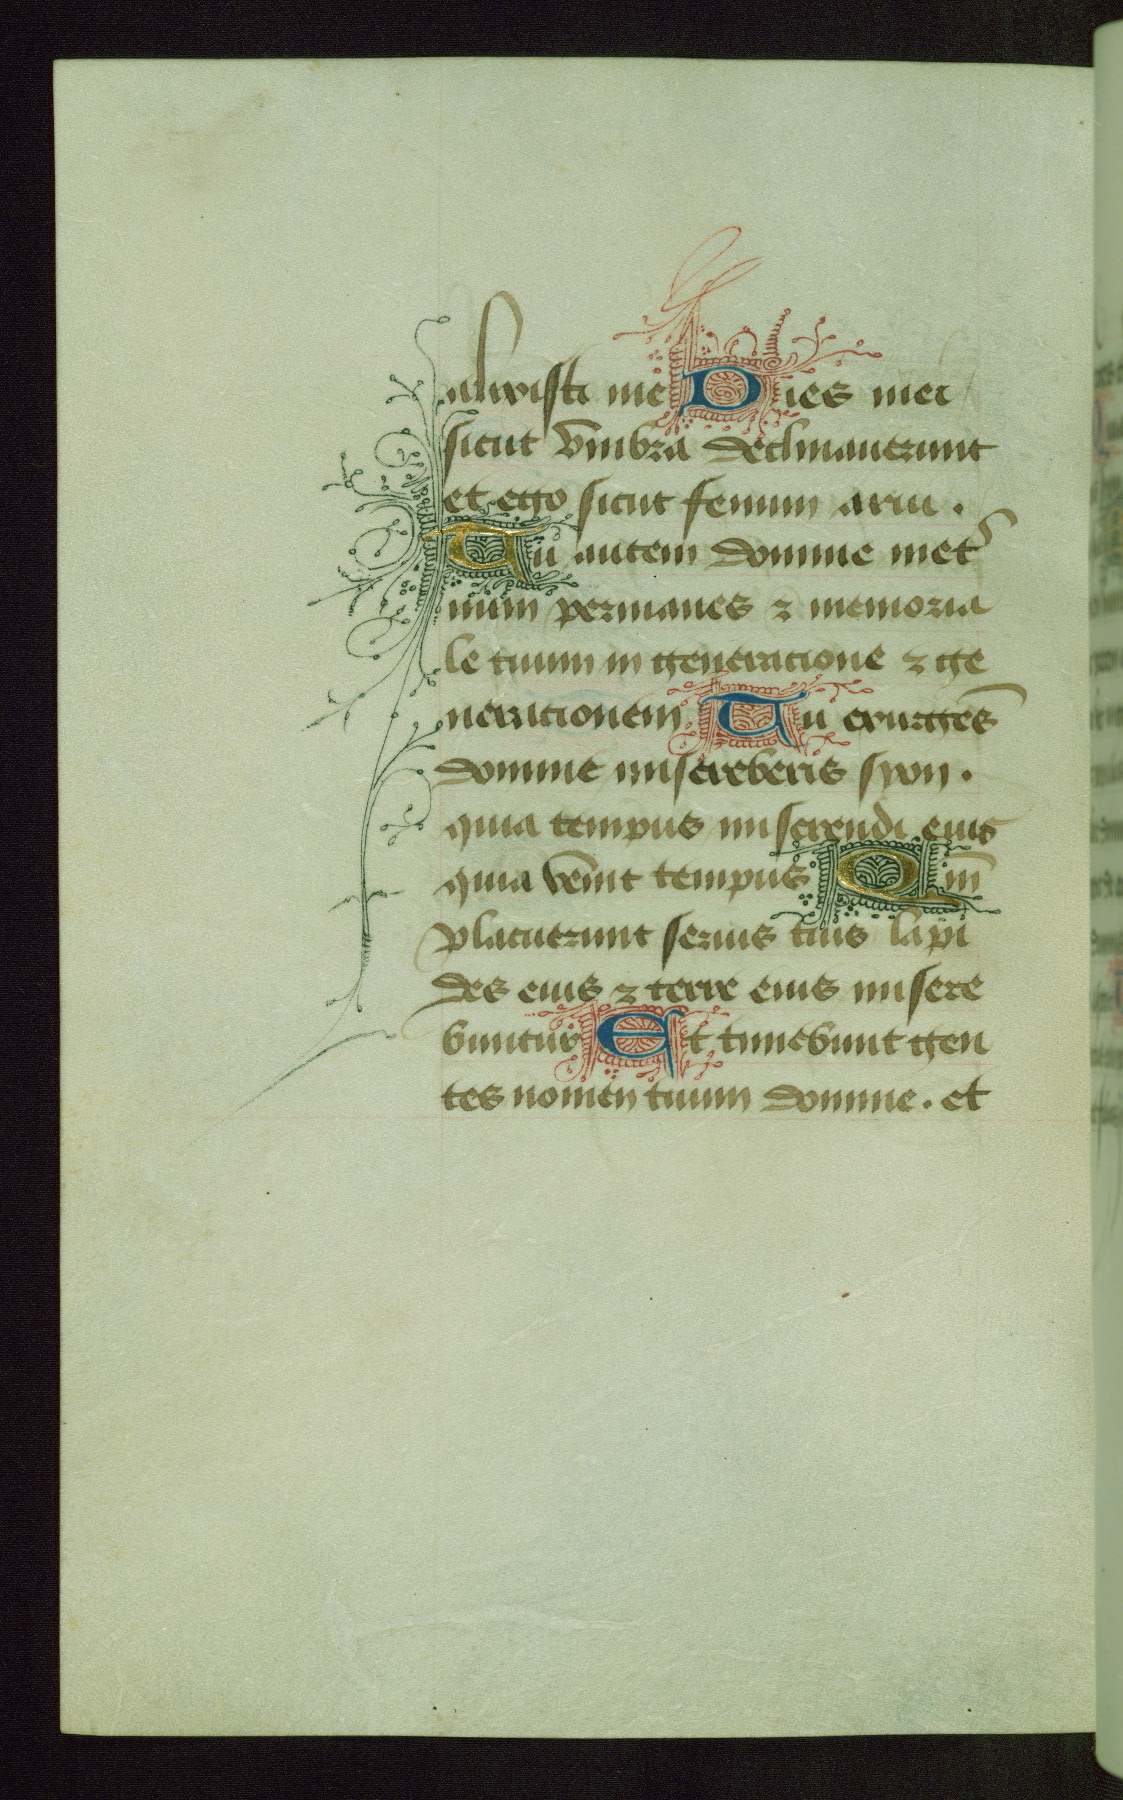 alixisti me Dies mei
sicut vmbra declinauerunt
et ego sicut fenum arui .
Tu autem domine inet͛
num permanes ⁊ memoria
le tuum in generacione ⁊ ge
neracionem Tu exurgēs
domine misereberis syon .
quia tempus miserendi eius
quia vēnit tempus Qm̄
placuerunt seruis tuis lapi
des eius ⁊ terre eius misere
buntur Et timebunt gen
tes nomen tuum domine . et